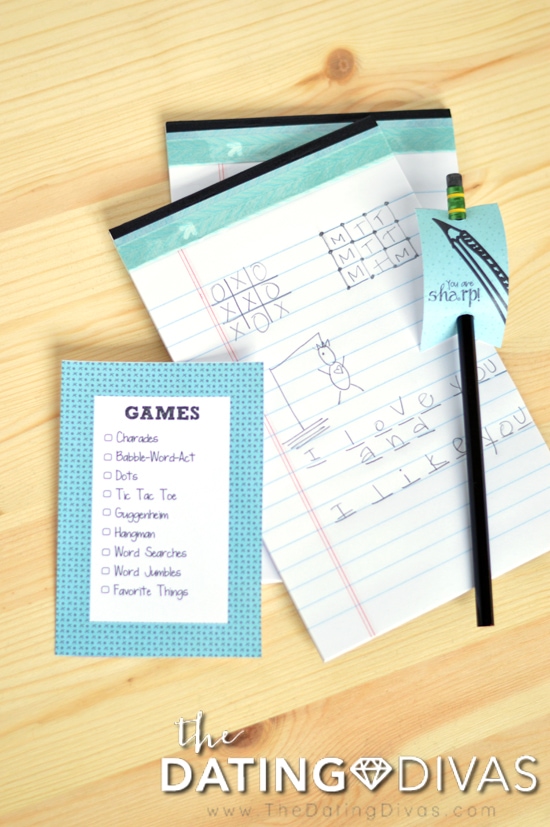 O X O
X X O
X O X
M T T
M T T
M + M
You are
sharp!
I love you
and
I like you
GAMES
Charades
Babble-Word-Act
Dots
Tic Tac Toe
Guggenheim
Hangman
Word Searches
Word Jumbles
Favorite Things
the
DATING DIVAS
www.TheDatingDivas.com